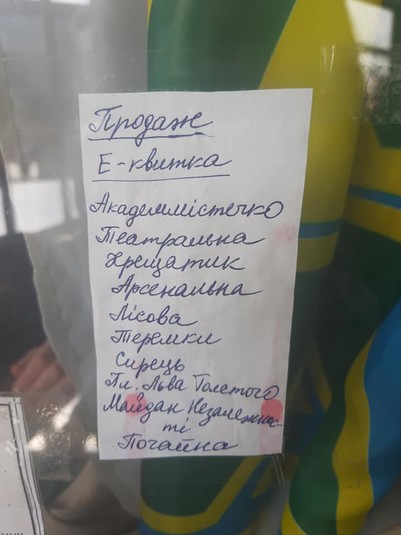 Продаж
Е-квитка
Академмістечко
Театральна
Хрещатик
Арсенальна
Лісова
Теремки
Сирець
Пл. Льва Толстого
Майдан Незалежнос
ті
Почайна